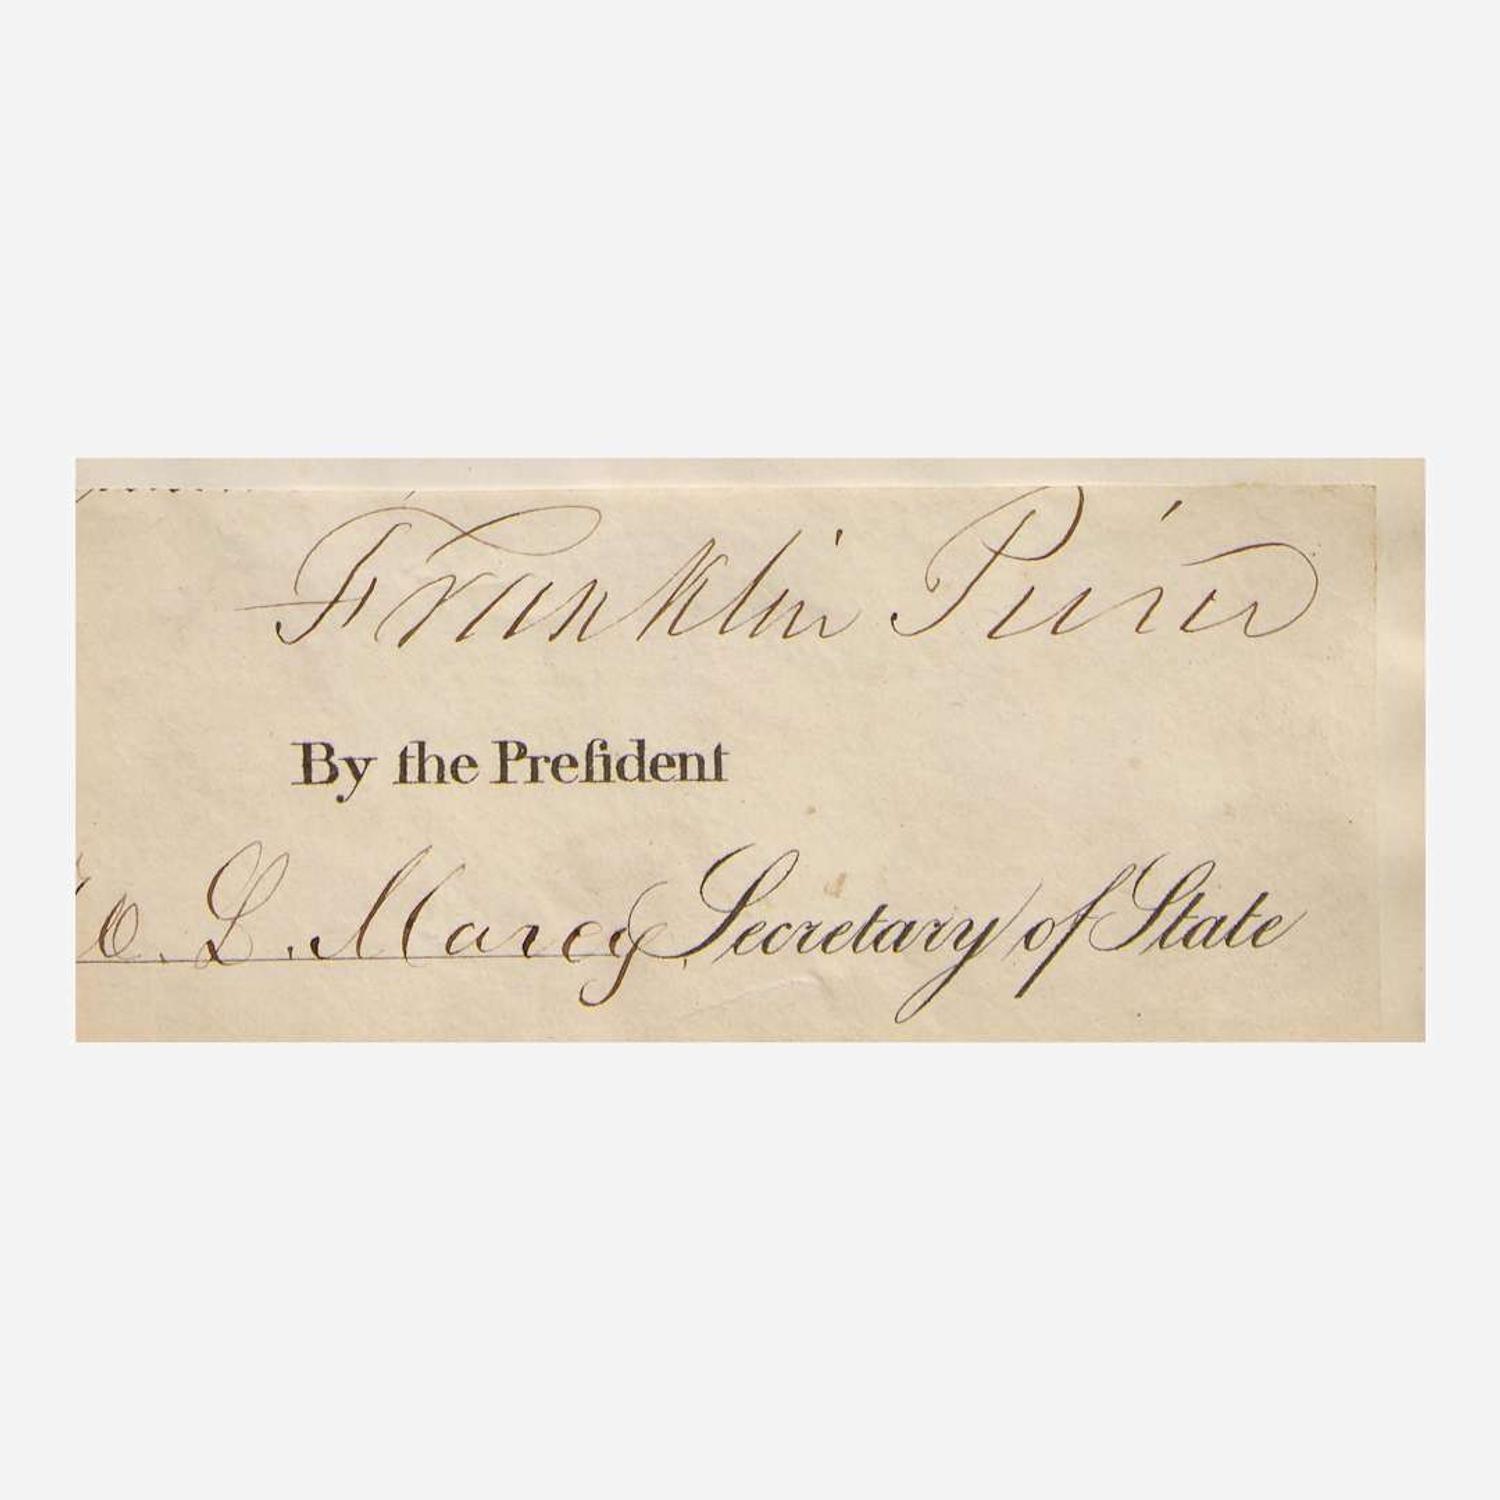 Franklin Pierce
By the Preſident
W. L. Marcy Secretary of State